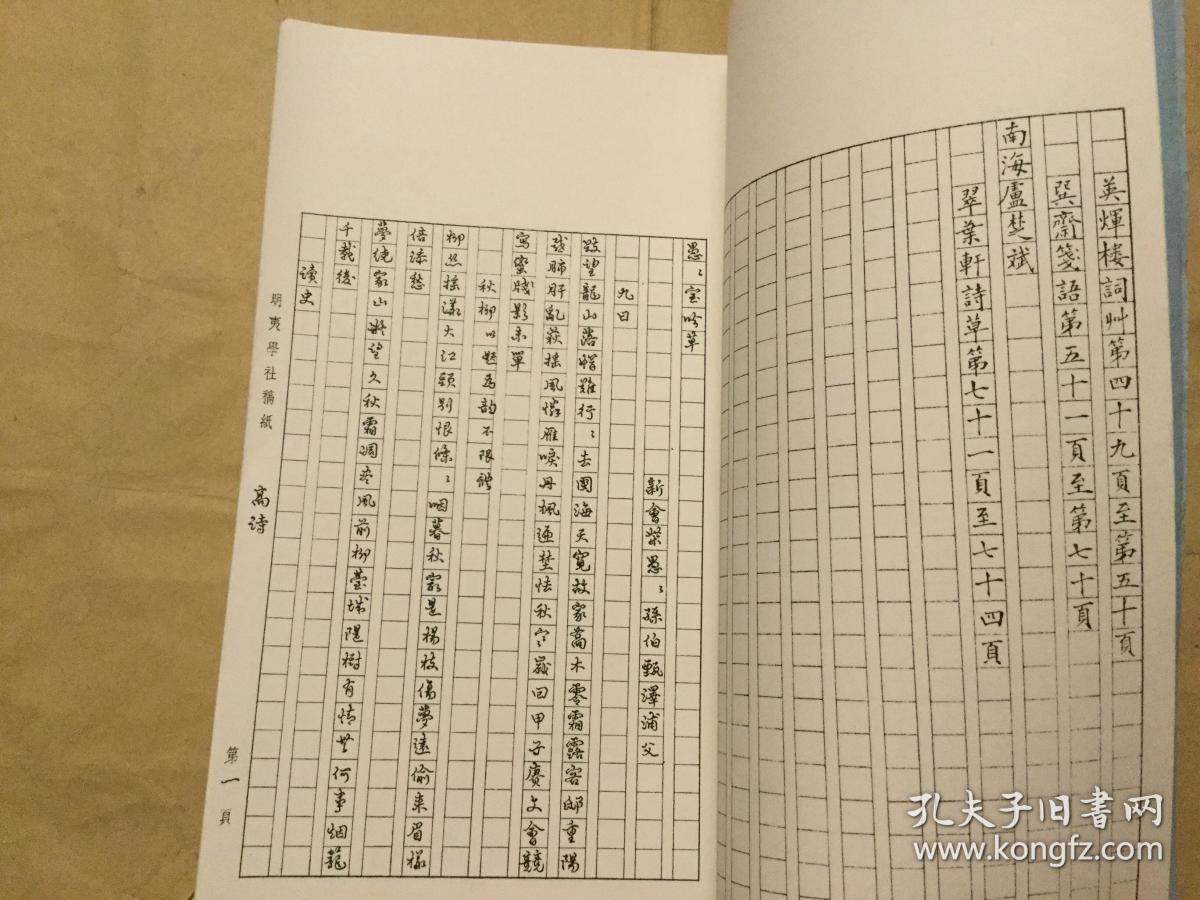 英煇樓詞艸第四十九頁至第五十頁
巽齋箋語第五十一頁至第七十頁
南海盧楚斌
翠葉軒詩草第七十一頁至七十四頁
愚〻室吟草
新會柴愚〻孫伯甄澤浦父
九日
望龍山落帽難行〻去國海天寬故家喬木零霜露客邸重陽
肺肝亂荻搖風憐雁唳丹楓通埜怯秋寒歲回甲子賡文會競
寫蠻牋影未單
秋柳以題為韵不限體
柳絲搖漾大江頭別恨條〻咽暮秋最是楊枝傷夢遠偷來眉樣
倍添愁
夢繞家山凝望久秋霜凋盡風前柳臺城隄樹有情無何事烟籠
千載後
讀史
明夷學社稿紙
高詩
第一頁
孔夫子旧书网
www.kongfz.com